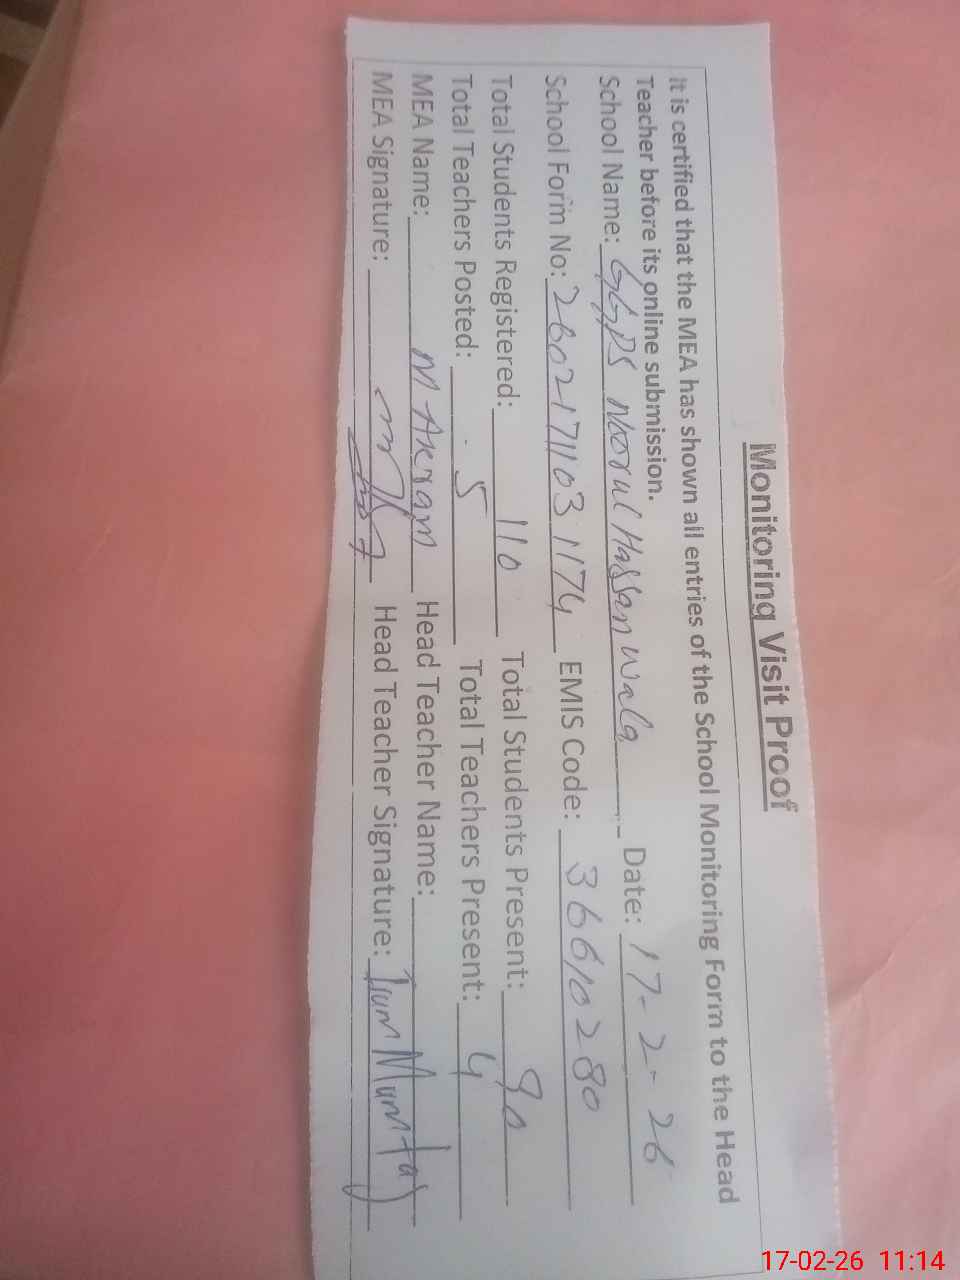 Monitoring Visit Proof
It is certified that the MEA has shown all entries of the School Monitoring Form to the Head
Teacher before its online submission.
School Name: GGPS Noorul Hassan wala Date: 17-2-26
School Form No: 26021711031174 EMIS Code: 36610280
Total Students Registered: 110 Total Students Present: 90
Total Teachers Posted: 5 Total Teachers Present: 4
MEA Name: M Akram Head Teacher Name:
MEA Signature: Head Teacher Signature: Mumtaj
17-02-26 11:14